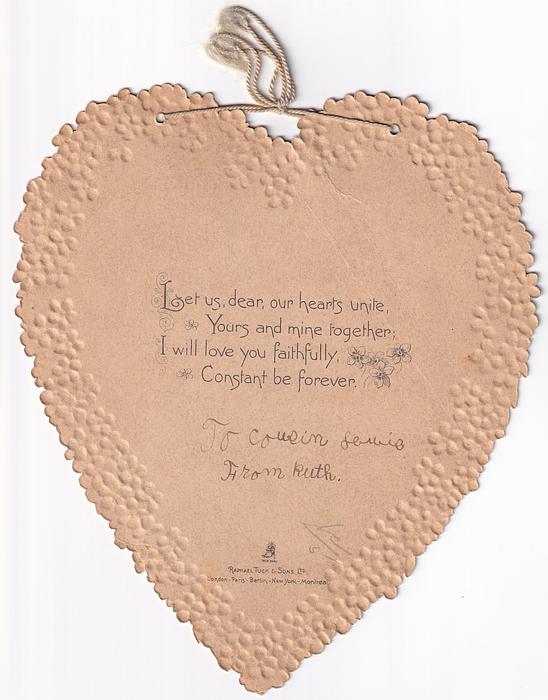 Let us, dear, our hearts unite,
Yours and mine together;
I will love you faithfully,
Constant be forever.
To cousin Lewis
From Ruth.
RAPHAEL TUCK & SONS, LTD.
London - Paris - Berlin - New York - Montreal